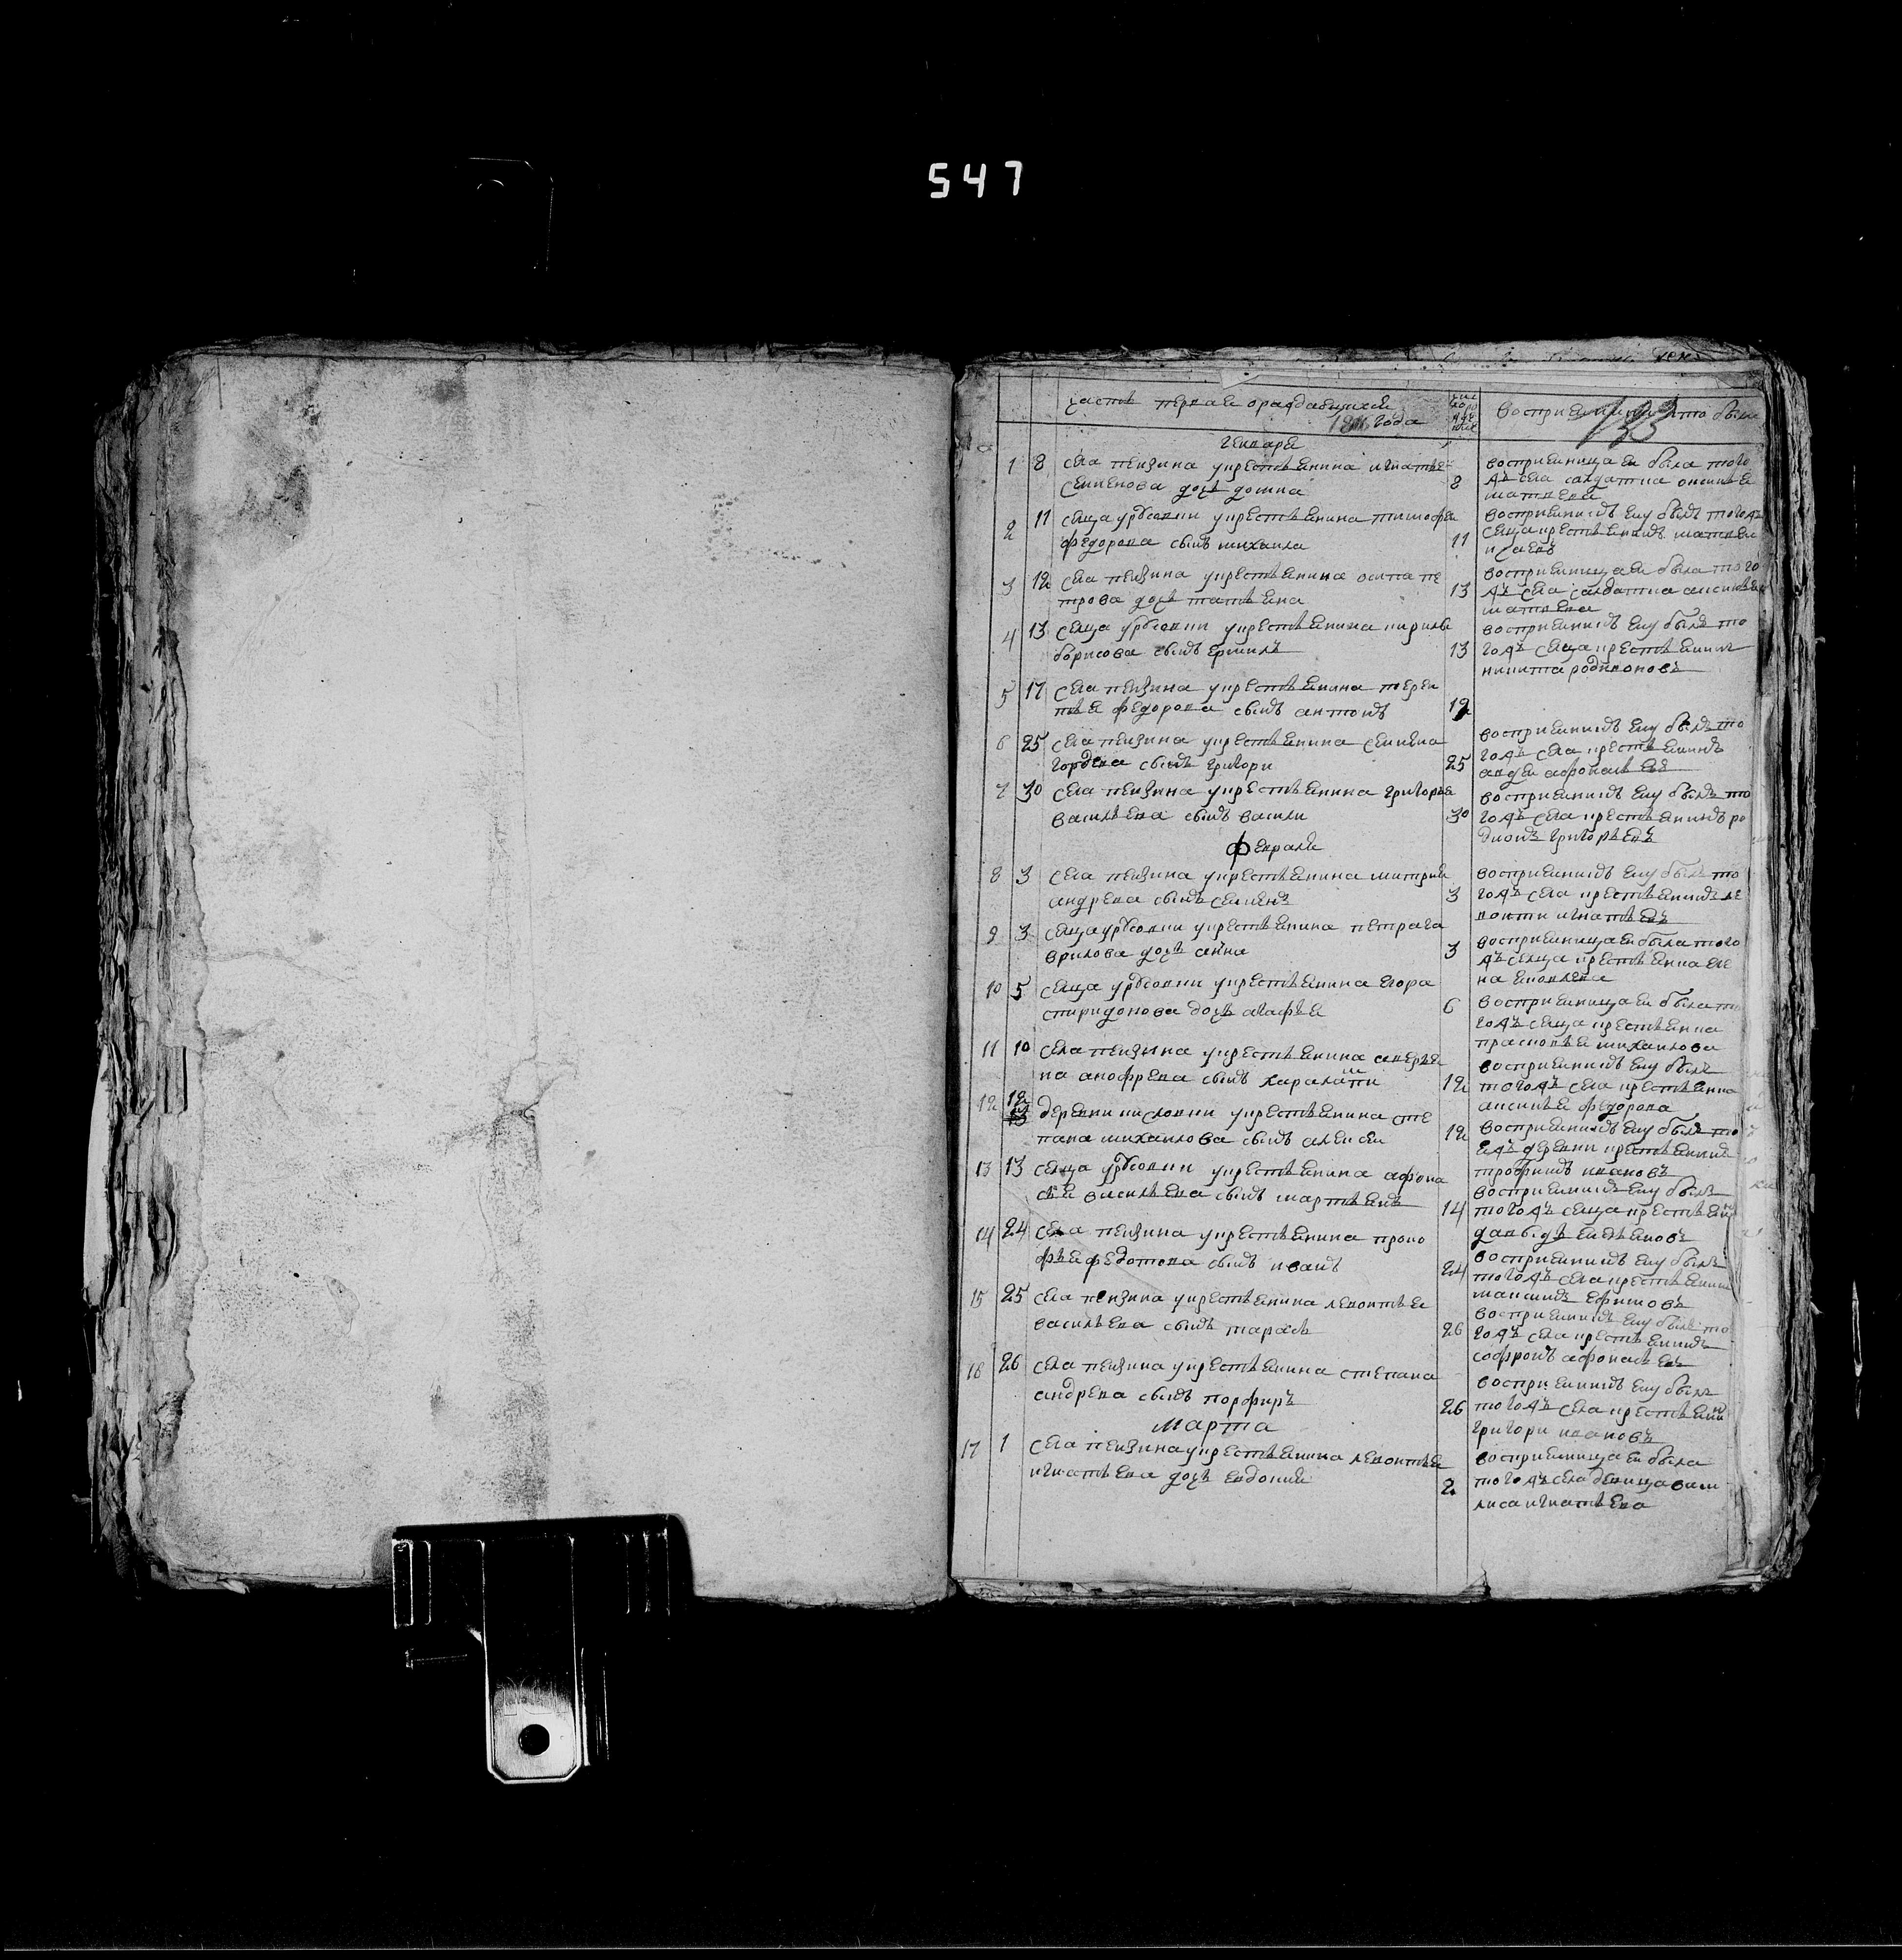 547
133
часть первая ораждающихся
года
восприемники кто были
генваря
1 8 села пензина у крестьянина игнатье
семенова дочь домна
8 восприемница ей была того
жъ села салдатка аксинья
матвева
2 11 сельца урусовки у крестьянина тимофея
федорова сынъ михаила
11 восприемникъ ему былъ тогожъ
сельца крестьянинъ матвеи
исаевъ
3 12 села пензина у крестьянина осипа пе
трова дочь татьяна
13 восприемница ей была того
жъ села салдатка аксинья
матвева
4 13 сельца урусовки у крестьянина кирила
борисова сынъ ермилъ
13 восприемникъ ему былъ то
гожъ сельца крестьянинъ
никита родивоновъ
5 17 села пензина у крестьянина терен
тья федорова сынъ антонъ
19
6 25 села пензина у крестьянина семена
гордева сынъ григори
25 восприемникъ ему былъ то
гожъ села крестьянинъ
авдеи афонасьевъ
7 30 села пензина у крестьянина григорья
васильева сынъ васили
30 восприемникъ ему былъ то
гожъ села крестьянинъ ро
дионъ григорьевъ
февраля
8 3 села пензина у крестьянина митрия
андрева сынъ семенъ
3 восприемникъ ему былъ то
гожъ села крестьянинъ ле
вонти игнатьевъ
9 3 сельца урусовки у крестьянина петра га
врилова дочь анна
3 восприемница ей была того
жъ сельца крестьянка еле
на яковлева
10 5 сельца урусовки у крестьянина егора
спиридонова дочь агафья
6 восприемница ей была то
гожъ сельца крестьянка
прасковья михаилова
11 10 села пензина у крестьянина аверья
на анофрева сынъ харалампи
12 восприемникъ ему былъ
тогожъ села крестьянка
аксинья федорова
12 12 деревни кисловки у крестьянина сте
пана михаилова сынъ алексеи
12 восприемникъ ему былъ то
яжъ деревни крестьянинъ
трофимъ ивановъ
13 13 сельца урусовки у крестьянина афона
сья васильева сынъ мартьянъ
14 восприемникъ ему былъ
тогожъ сельца крестьянинъ
давыдъ емельяновъ
14 24 села пензина у крестьянина проко
фья федотова сынъ иванъ
24 восприемникъ ему былъ
тогожъ села крестьянин
максимъ ефимовъ
15 25 села пензина у крестьянина левонтья
васильева сынъ тарасъ
26 восприемникъ ему былъ то
гожъ села крестьянинъ
софронъ афонасьевъ
16 26 села пензина у крестьянина степана
андрева сынъ порфиръ
26 восприемникъ ему былъ
тогожъ села крестьянинъ
григори ивановъ
марта
17 1 села пензина у крестьянина левонтья
игнатьева дочь евдокия
2 восприемница ей была
тогожъ села девица васи
лиса игнатьева